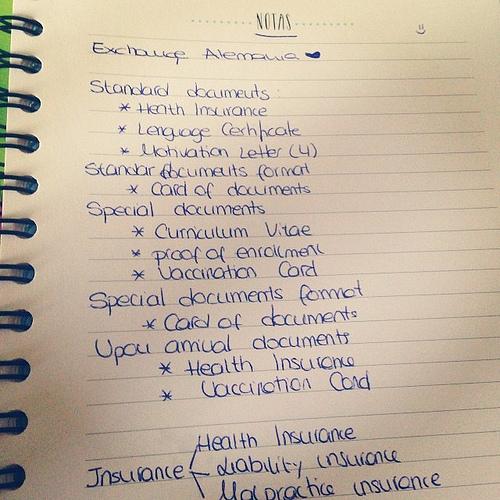 NOTAS
Exchange Alemania
Standard documents:
* Health Insurance
* Lenguage Certificate
* Motivation Letter (4)
Standar documents format
* Card of documents
Special documents
* Curriculum Vitae
* proof of enrollment
* Vaccination Card
Special documents format
* Card of documents
Upon arrival documents
* Health Insurance
* Vaccination Card
Health Insurance
Insurance Liability insurance
Malpractice insurance